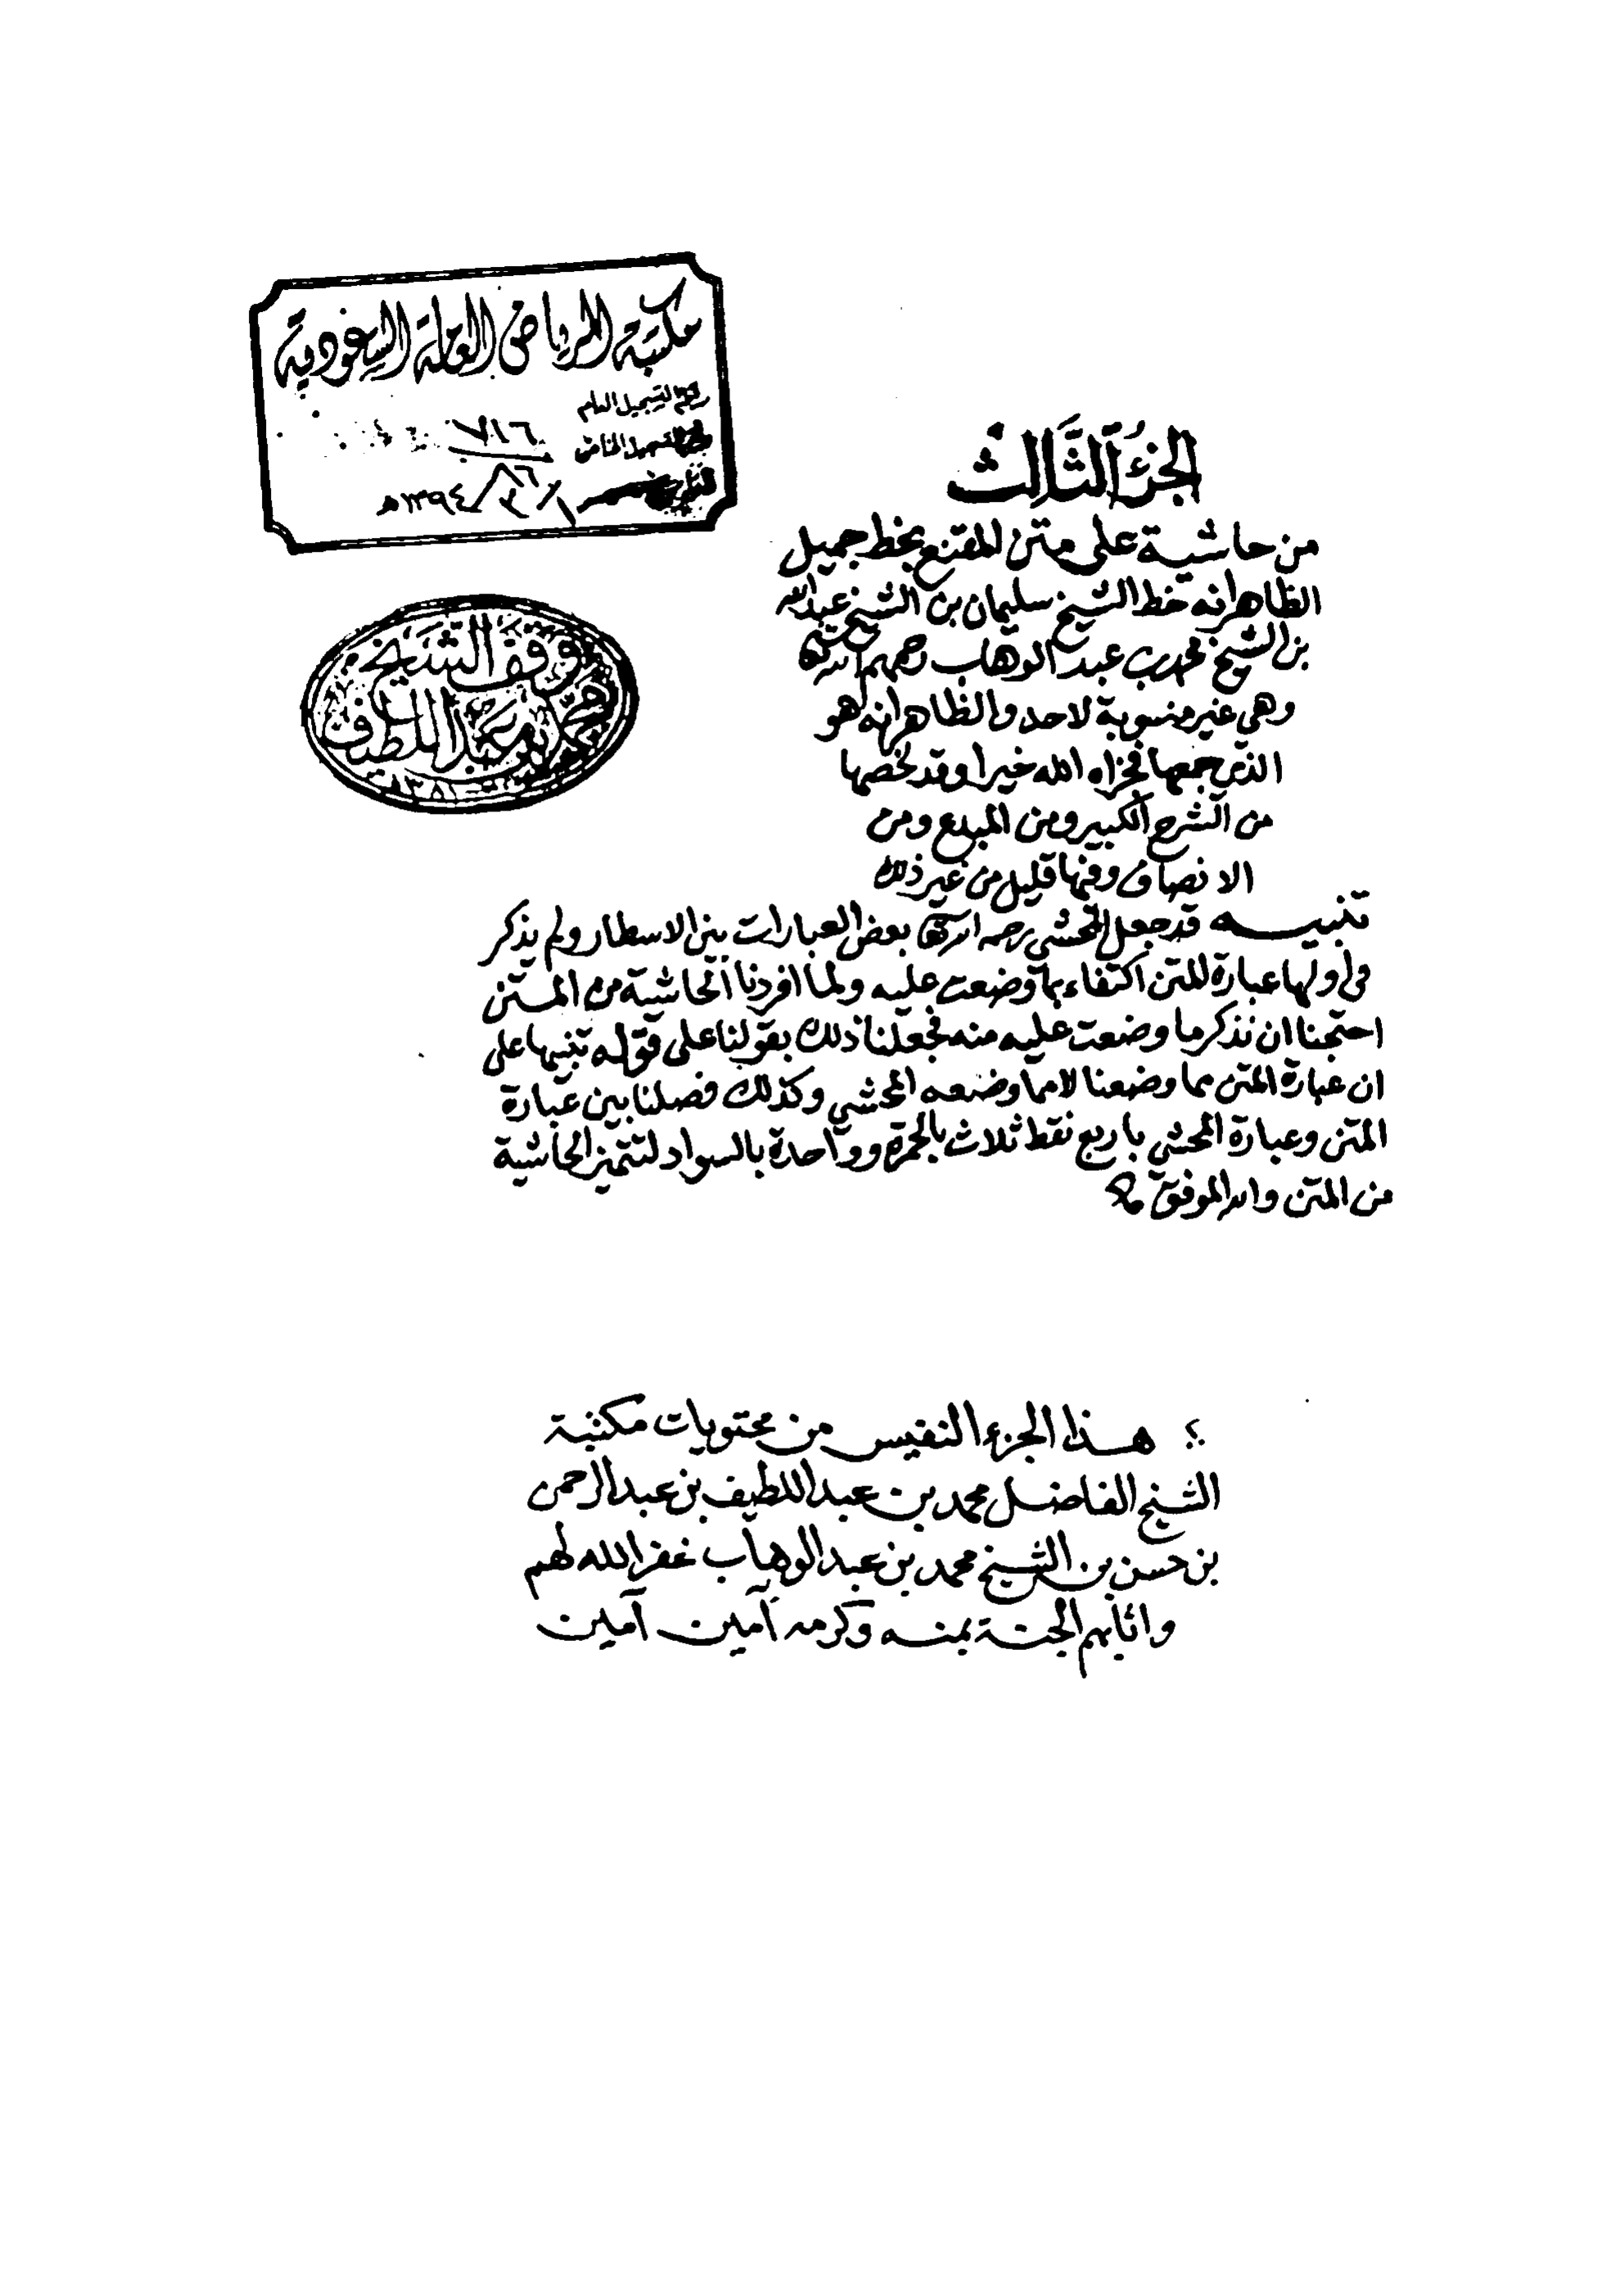 مكتبة الرياض العامة السعودية
رقم التسجيل العام
٧١٦
التاريخ ١٣٩٤هـ
وقف الشيخ
محمد بن عبد اللطيف
الجزءُ الثَّالث
من حاشية على متن المقنع بخط جميل
الظاهر انه خط الشيخ سليمان بن الشيخ عبد الله
بن الشيخ محمد بن عبد الوهاب رحمهم الله تعالى
وهي غير منسوبة لاحد والظاهر انه هو
الذي جمعها فجزاه الله خيرا وقد لخصها
من الشرح الكبير ومن المبدع ومن
الانصاف وفيها قليل من غير ذلك
تنبيه قد جعل المحشي رحمه الله تعالى بعض العبارات بين الاسطار ولم يذكر
في اولها عبارة للمتن اكتفاء بما وضعت عليه ولما افردنا الحاشية من المتن
احتجنا ان نذكر ما وضعت عليه منه فجعلنا ذلك بقولنا على قوله تنبيها على
ان عبارة المتن مما وضعنا لا مما وضعه المحشي وكذلك فصلنا بين عبارة
المتن وعبارة المحشي باربع نقط ثلاث بالحمرة وواحدة بالسواد لتتميز الحاشية
من المتن والله الموفق
هذا الجزء النفيس من محتويات مكتبة
الشيخ الفاضل محمد بن عبد اللطيف بن عبد الرحمن
بن حسن بن الشيخ محمد بن عبد الوهاب غفر الله لهم
واثابهم الجنة بمنه وكرمه آمين آمين